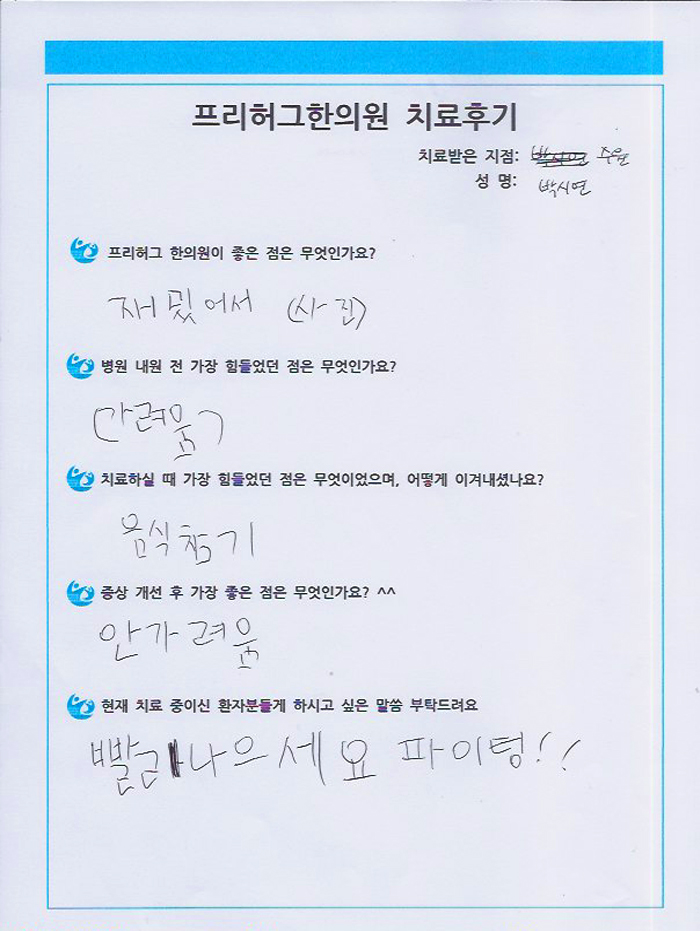 프리허그한의원 치료후기
치료받은 지점: 수원
성 명: 박시연
프리허그 한의원이 좋은 점은 무엇인가요?
재밌어서 (사진)
병원 내원 전 가장 힘들었던 점은 무엇인가요?
(가려움)
치료하실 때 가장 힘들었던 점은 무엇이었으며, 어떻게 이겨내셨나요?
음식참기
증상 개선 후 가장 좋은 점은 무엇인가요? ^^
안가려움
현재 치료 중이신 환자분들게 하시고 싶은 말씀 부탁드려요
빨리나으세요 파이팅!!